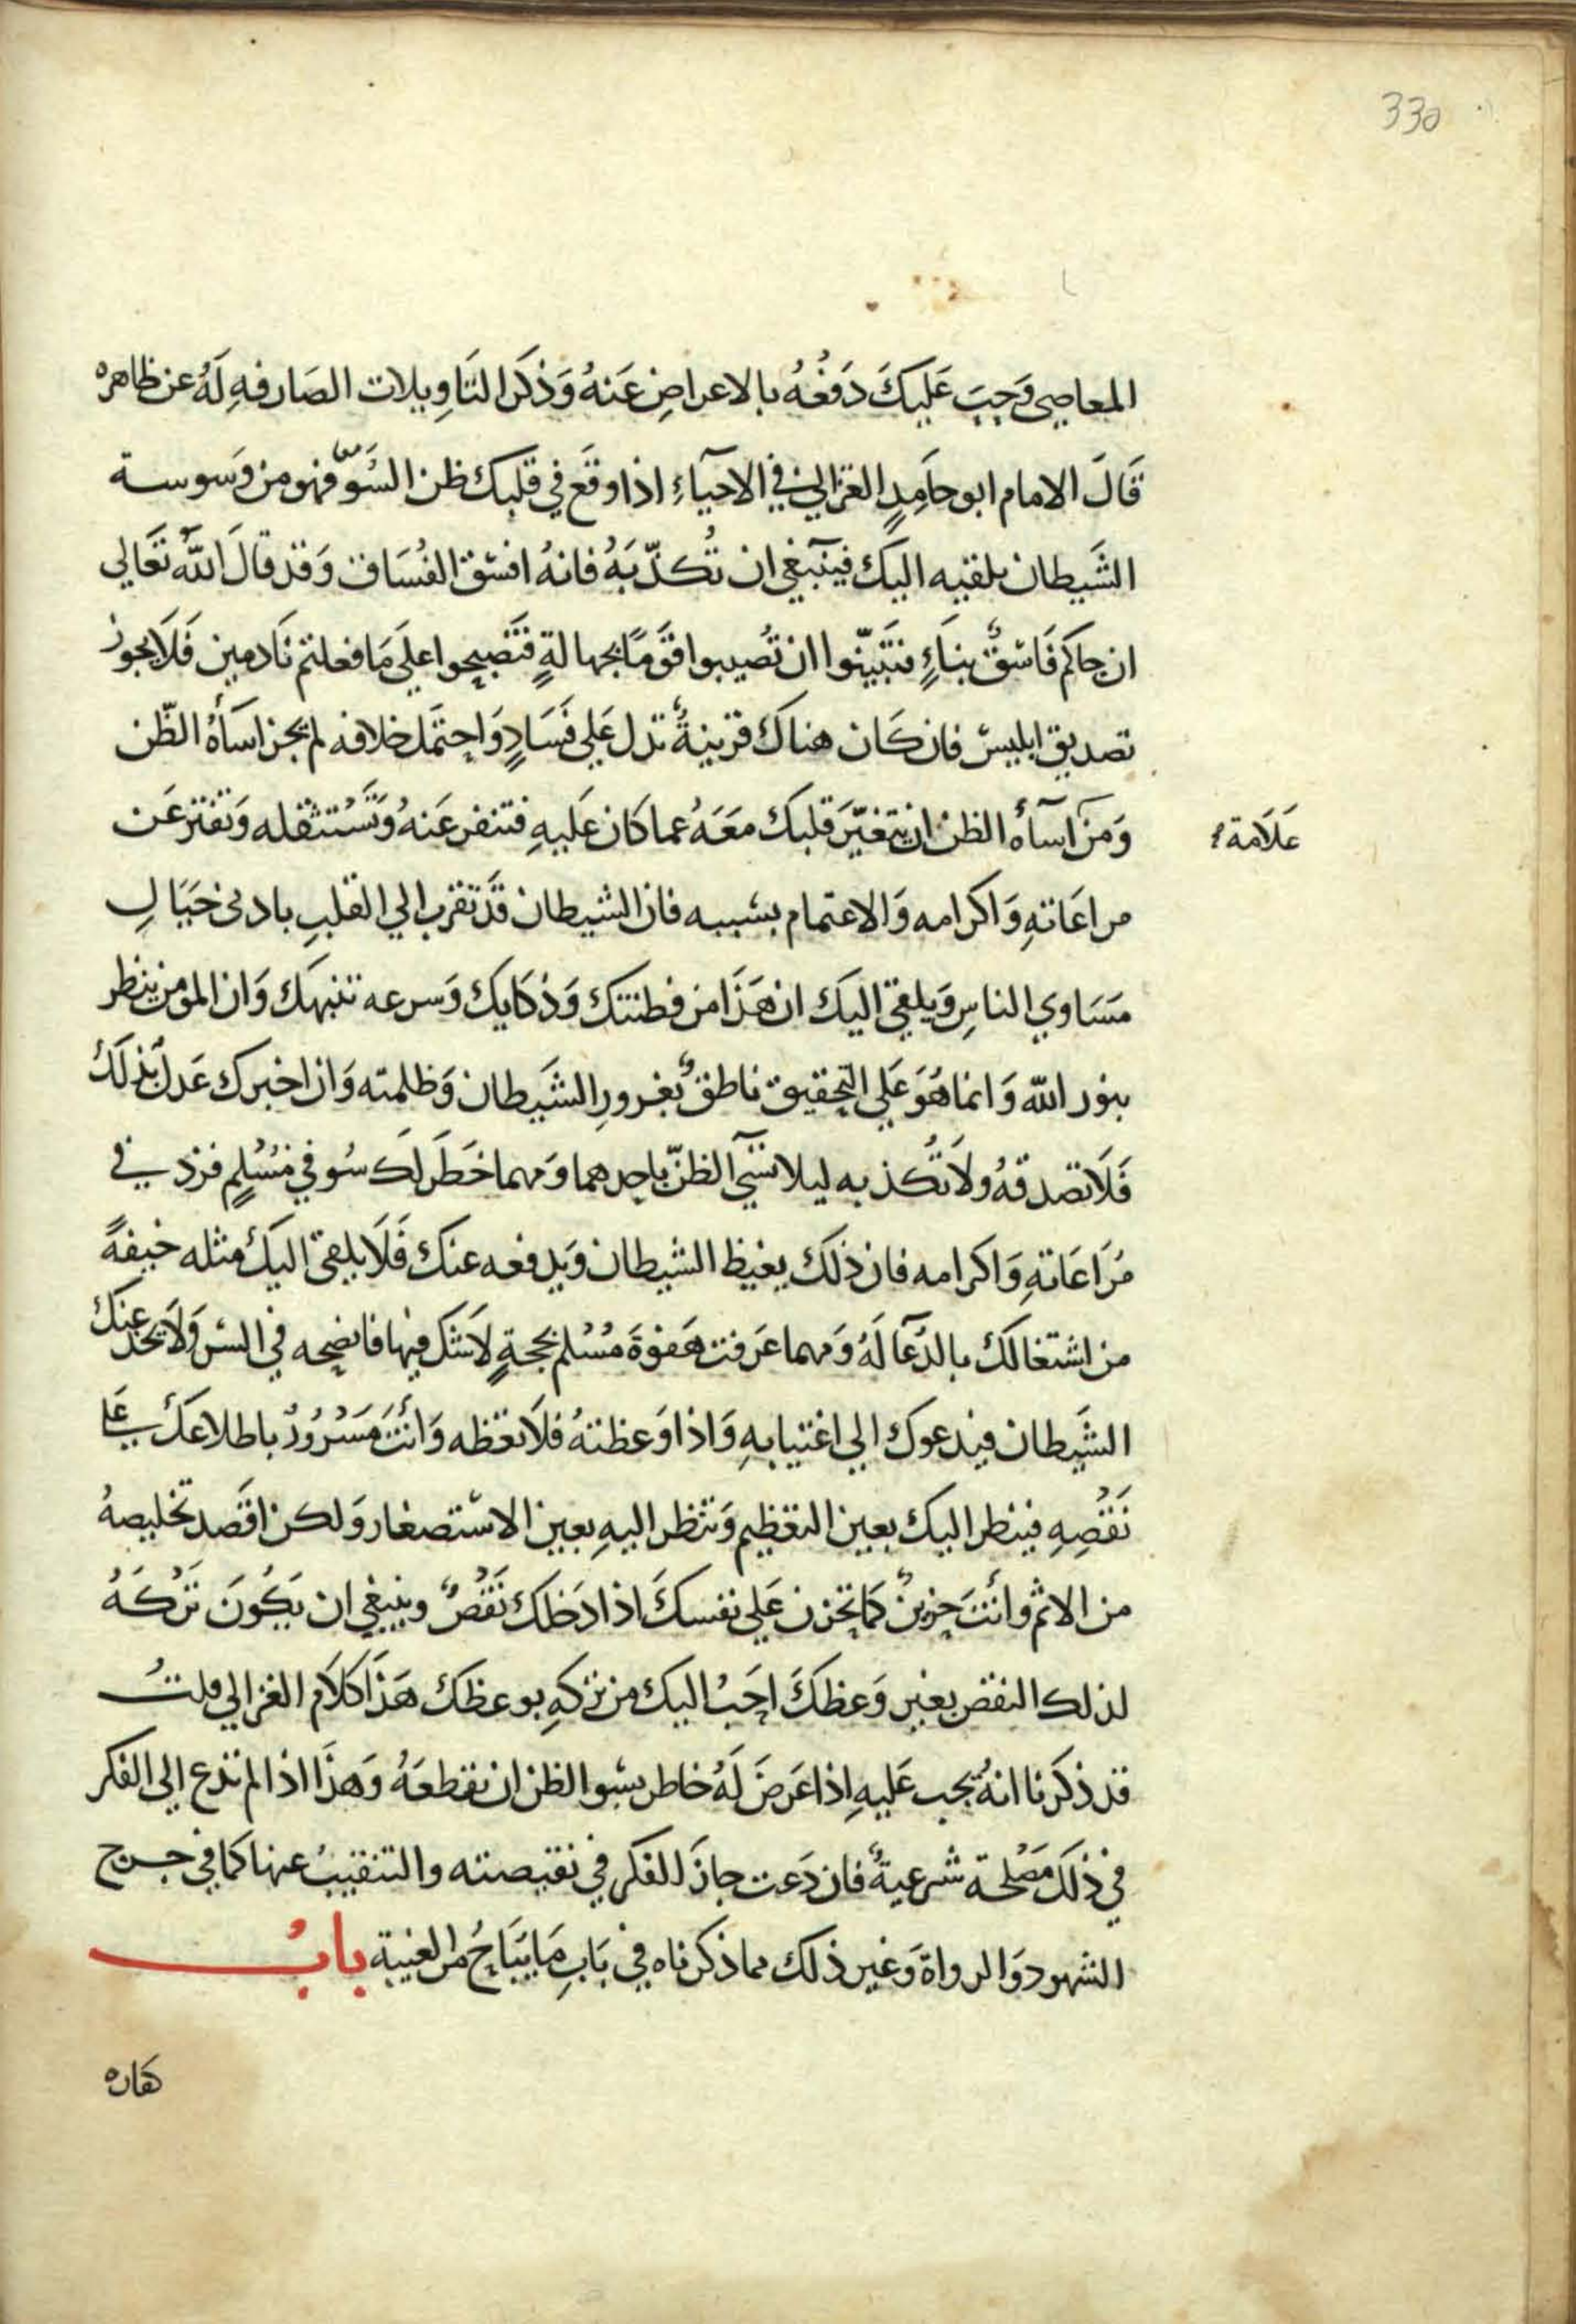 330
المعاصي وَجبَ عَليكَ دَفعُهُ بالاعراضِ عَنهُ وَذكر التَاوِيلات الصَارفهِ لَهُ عن ظاهره
قَالَ الامام ابو حامِدٍ الغزالي في الاحيآءِ اذا وقَع في قلبك ظن السُوءِ فهو من وَسوسة
الشَيطان يلقيه اليك فينبَغي ان تُكذّبَهُ فانهُ افسَق الفُسَاق وَقد قالَ اللهُ تعَالي
ان جاكم فَاسقٌ بنبَاءٍ فتبَيّنوا ان تُصيبوا قوَمًا بجهالةٍ فتَصبحوا علَي مَا فعلتم نَادمين فَلَا يجوز
تصديق ابليسَ فان كَان هناكَ قرينةٌ تدل عَلي فَسَادٍ وَاحتمَل خلافه لم يجز اسَأَةُ الظّن
وَمن اسآة الظن ان يتغيّرَ قلبك معَهُ عما كَان عَليهِ فتنفر عَنهُ وَتَستثقله وَتفتر عَن
علَامة
مراعَاتهِ وَاكرامه وَالاغتمام بسَببه فان الشيطان قَد تقرب الي القلبِ بادني خيَالِ
مسَاوي الناسِ وَيلقي اليك ان هَذَا من فطنتك وَذكَايك وَسرعه تنبهك وَان المومن ينظر
بنور الله وَانما هُوَ عَلي التحقيق ناطقٌ بغرورِ الشَيطان وَظلمته وَان اخبرك عَدل بذلكَ
فَلَا تصدقهُ ولَا تُكذبه ليلا تسَي الظنّ باحدهما وَمهما خَطَر لكَ سُو في مُسْلِمٍ فزد في
مُرَاعَاتهِ وَاكرامه فان ذلك يغيظ الشيطان وَيدفعه عنك فَلَا يلقي اليكَ مثله خيفةً
من اشتغالك بالدُعَا لَهُ وَمهما عرَفت هَفوَةَ مُسْلم بحجةٍ لَا شك فيها فانصحه في السر وَلَا يخدعنك
الشَيطان فيدعوك الي اغتيابهِ وَاذا وَعظتهُ فلَا تعَظه وَانتَ مَسْرُورٌ باطلاعك علي
نَقْصِهِ فينظر اليك بعين التعظيم وَتنظر اليهِ بعين الاستصغار وَلكن اقصَد تخليصهُ
من الاثم وانتَ حزينٌ كما تحزن عَلي نفسكَ اذا دَخلك نَقْصٌ وينبغي ان يَكُونَ تَرْكَهُ
لذلك النقص بغير وَعظكَ احَب اليك من تركهِ بوعظك هَذا كلَام الغزالي قلتُ
قد ذكرنا انهُ يجب عَليهِ اذا عَرضَ لَهُ خاطر بسو الظن ان يقطعَهُ وَهذَا اذا لم تدع الي الفكر
في ذلكَ مصْلحة شرعيةٌ فان دَعت جازَ الفكر في نقيصته والتنقيب عنها كما في جرح
الشهود وَالرواة وَغير ذلك مما ذكرناه في بَابِ مَا يبَاحُ من الغيبة بابُ
كفاره